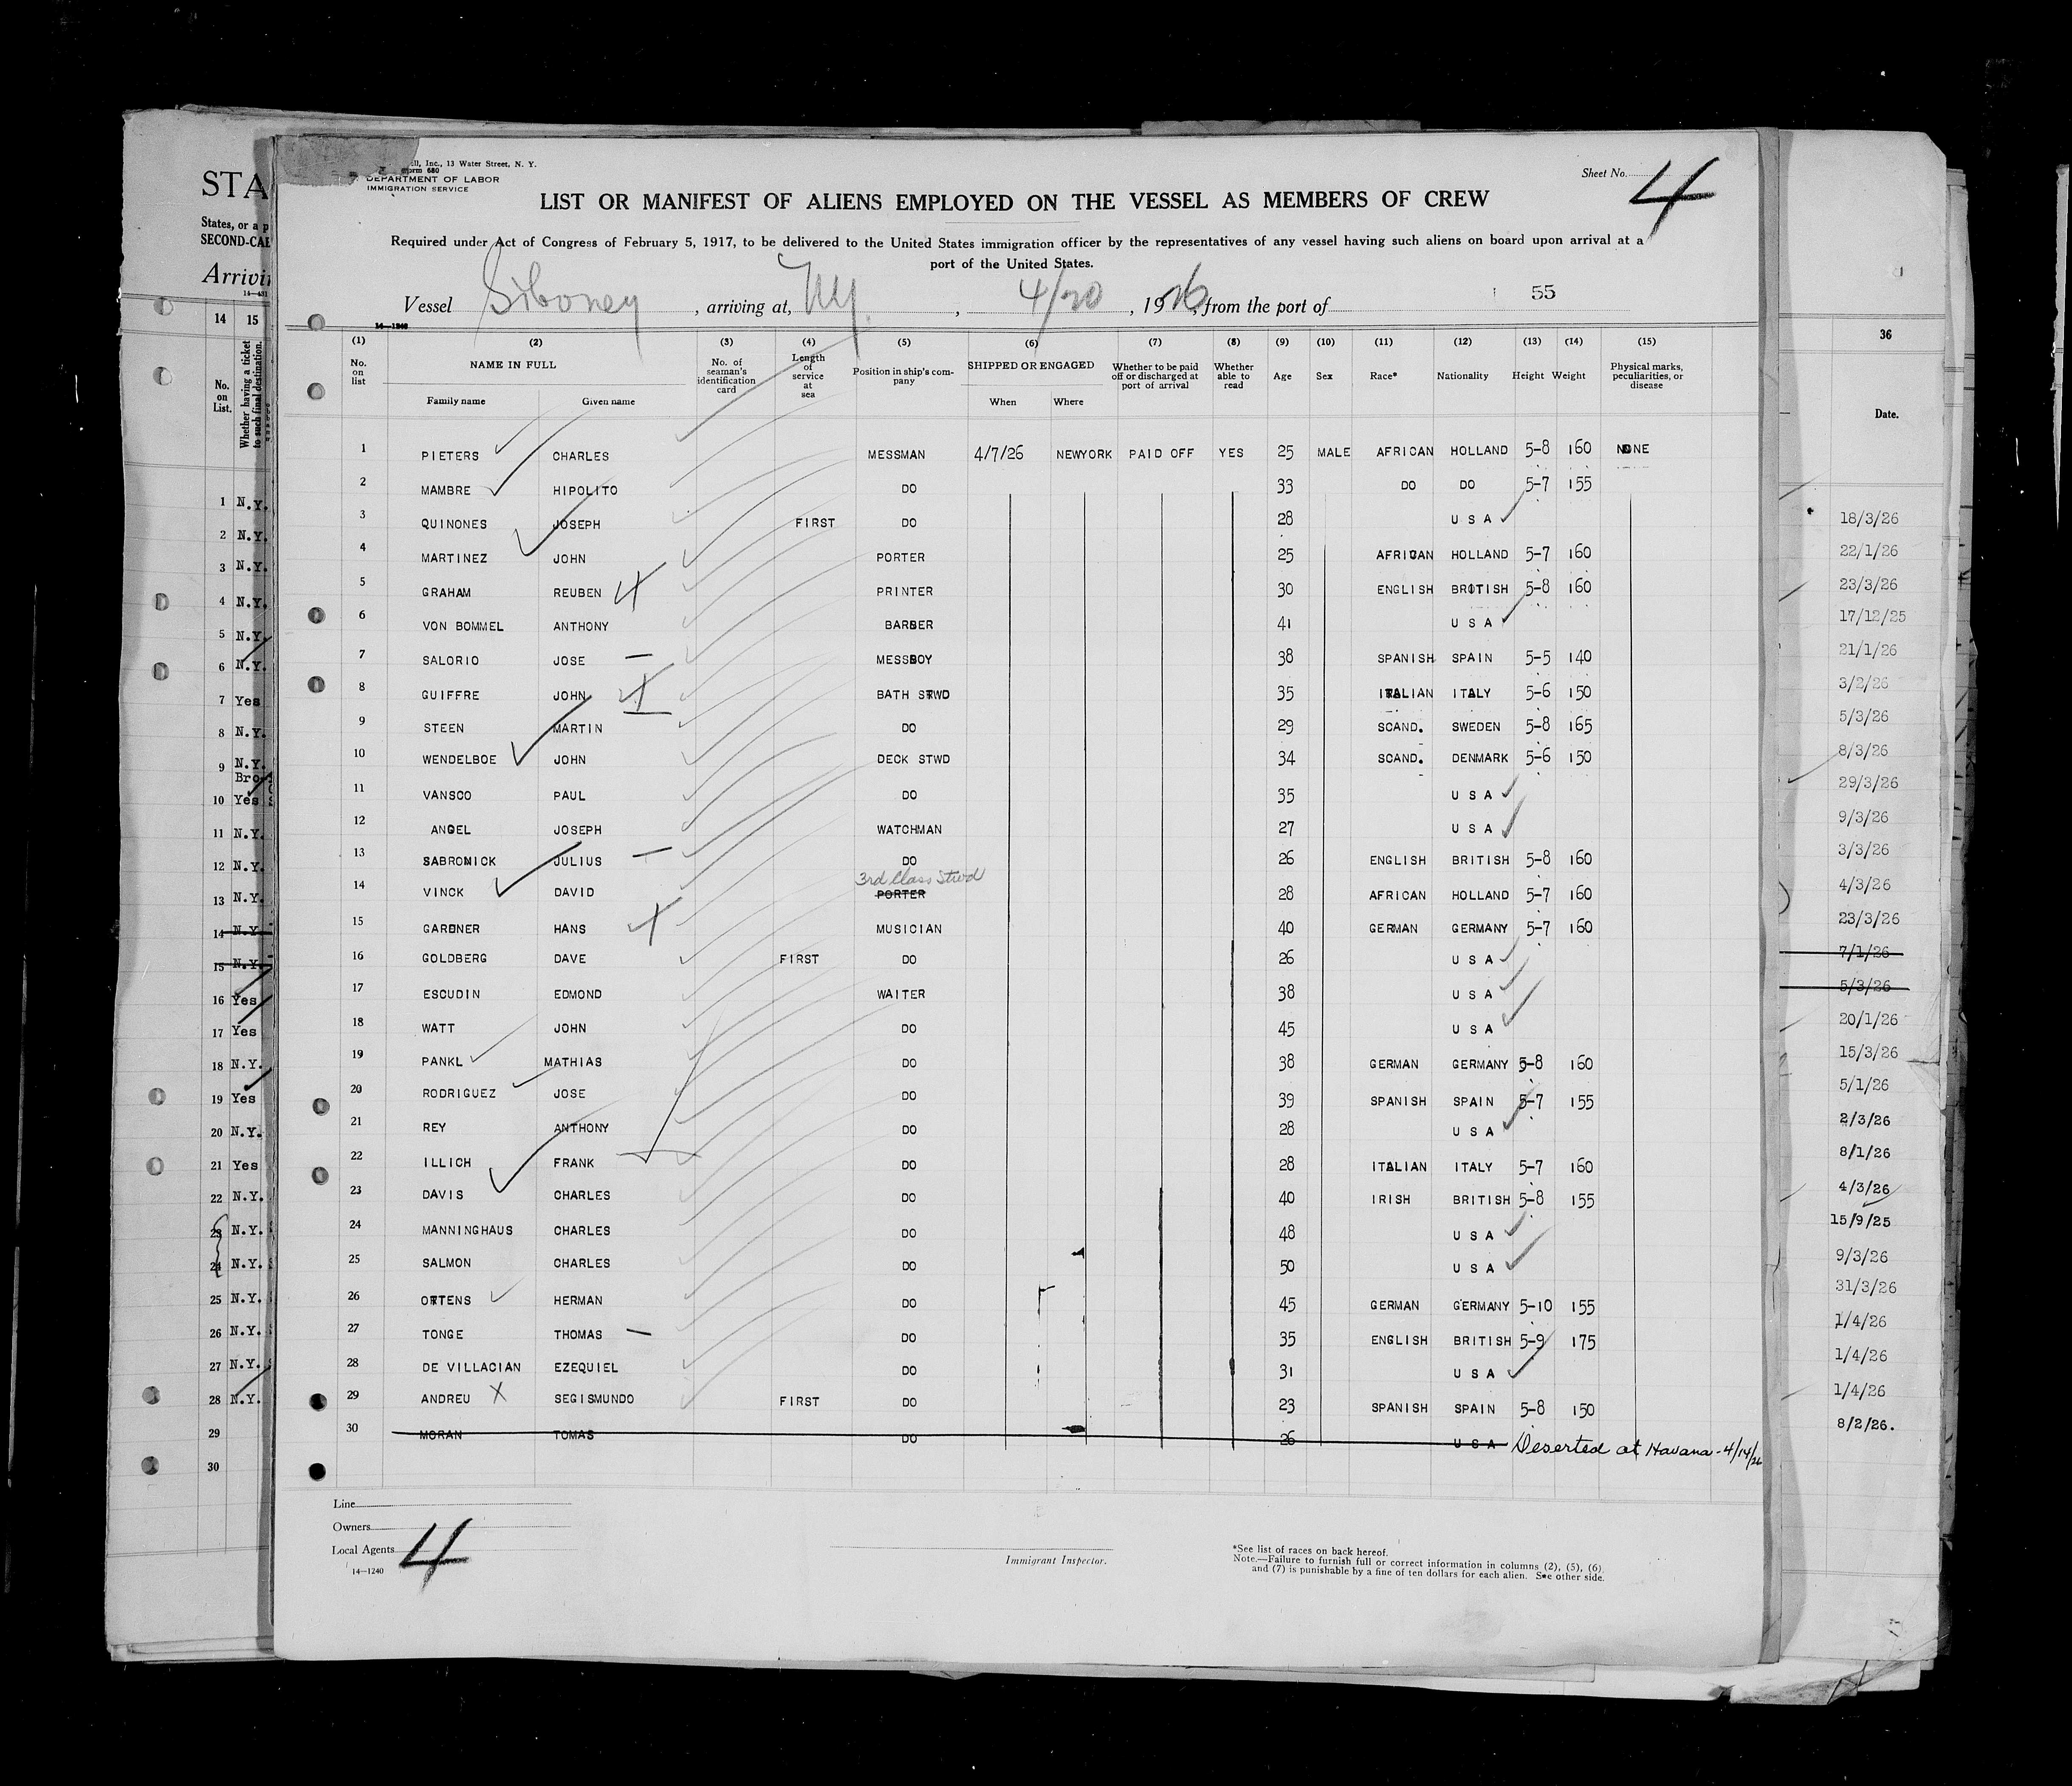 ll, Inc., 13 Water Street, N. Y.
Form 680
DEPARTMENT OF LABOR
IMMIGRATION SERVICE
Sheet No. 4
LIST OR MANIFEST OF ALIENS EMPLOYED ON THE VESSEL AS MEMBERS OF CREW
Required under Act of Congress of February 5, 1917, to be delivered to the United States immigration officer by the representatives of any vessel having such aliens on board upon arrival at a
port of the United States.
55
Vessel Siboney, arriving at, NY, 4/20, 1926, from the port of
14—1240
(1) (2) (3) (4) (5) (6) (7) (8) (9) (10) (11) (12) (13) (14) (15)
No. on list NAME IN FULL Family name Given name No. of seaman's identification card Length of service at sea Position in ship's company SHIPPED OR ENGAGED When Where Whether to be paid off or discharged at port of arrival Whether able to read Age Sex Race* Nationality Height Weight Physical marks, peculiarities, or disease
1 PIETERS CHARLES MESSMAN 4/7/26 NEWYORK PAID OFF YES 25 MALE AFRICAN HOLLAND 5-8 160 NONE
2 MAMBRE HIPOLITO DO 33 DO DO 5-7 155
3 QUINONES JOSEPH FIRST DO 28 U S A
4 MARTINEZ JOHN PORTER 25 AFRICAN HOLLAND 5-7 160
5 GRAHAM REUBEN PRINTER 30 ENGLISH BRITISH 5-8 160
6 VON BOMMEL ANTHONY BARBER 41 U S A
7 SALORIO JOSE MESSBOY 38 SPANISH SPAIN 5-5 140
8 GUIFFRE JOHN BATH STWD 35 ITALIAN ITALY 5-6 150
9 STEEN MARTIN DO 29 SCAND. SWEDEN 5-8 165
10 WENDELBOE JOHN DECK STWD 34 SCAND. DENMARK 5-6 150
11 VANSCO PAUL DO 35 U S A
12 ANGEL JOSEPH WATCHMAN 27 U S A
13 SABROMICK JULIUS DO 26 ENGLISH BRITISH 5-8 160
3rd Class Stwd
14 VINCK DAVID PORTER 28 AFRICAN HOLLAND 5-7 160
15 GARDNER HANS MUSICIAN 40 GERMAN GERMANY 5-7 160
16 GOLDBERG DAVE FIRST DO 26 U S A
17 ESCUDIN EDMOND WAITER 38 U S A
18 WATT JOHN DO 45 U S A
19 PANKL MATHIAS DO 38 GERMAN GERMANY 5-8 160
20 RODRIGUEZ JOSE DO 39 SPANISH SPAIN 5-7 155
21 REY ANTHONY DO 28 U S A
22 ILLICH FRANK DO 28 ITALIAN ITALY 5-7 160
23 DAVIS CHARLES DO 40 IRISH BRITISH 5-8 155
24 MANNINGHAUS CHARLES DO 48 U S A
25 SALMON CHARLES DO 50 U S A
26 OTTENS HERMAN DO 45 GERMAN GERMANY 5-10 155
27 TONGE THOMAS DO 35 ENGLISH BRITISH 5-9 175
28 DE VILLACIAN EZEQUIEL DO 31 U S A
29 ANDREU X SEGISMUNDO FIRST DO 23 SPANISH SPAIN 5-8 150
30 MORAN TOMAS DO 26 U S A Deserted at Havana - 4/14/26
Line
Owners
Local Agents 4
14—1240
Immigrant Inspector.
*See list of races on back hereof.
Note.—Failure to furnish full or correct information in columns (2), (5), (6)
and (7) is punishable by a fine of ten dollars for each alien. See other side.
STA
States, or a p
SECOND-CAB
Arrivi
14 15
No. on List. Whether having a ticket to such final destination.
1 N.Y.
2 N.Y.
3 N.Y.
4 N.Y.
5 N.Y.
6 N.Y.
7 Yes
8 N.Y.
9 N.Y.
Bro
10 Yes
11 N.Y.
12 N.Y.
13 N.Y.
14 N.Y.
15 N.Y.
16 Yes
17 Yes
18 N.Y.
19 Yes
20 N.Y.
21 Yes
22 N.Y.
23 N.Y.
24 N.Y.
25 N.Y.
26 N.Y.
27 N.Y.
28 N.Y.
29
30
36
Date.
18/3/26
22/1/26
23/3/26
17/12/25
21/1/26
3/2/26
5/3/26
8/3/26
29/3/26
9/3/26
3/3/26
4/3/26
23/3/26
7/1/26
5/3/26
20/1/26
15/3/26
5/1/26
2/3/26
8/1/26
4/3/26
15/9/25
9/3/26
31/3/26
1/4/26
1/4/26
1/4/26
8/2/26.